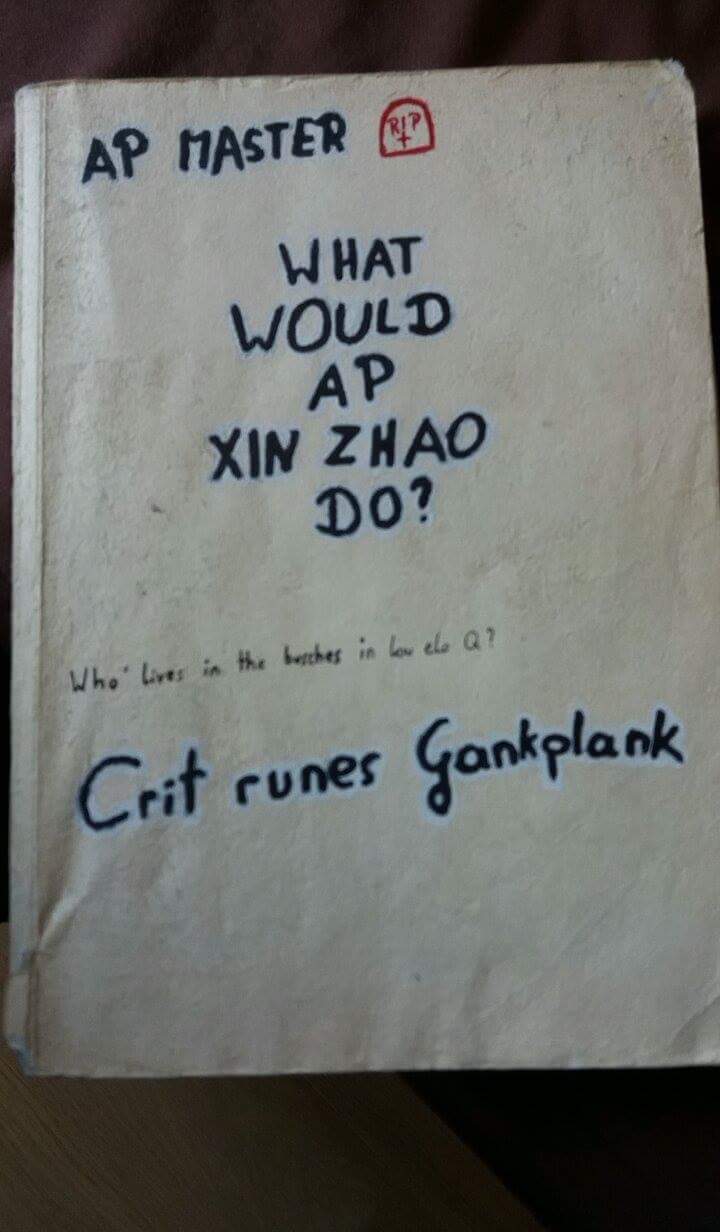 AP MASTER RIP
WHAT
WOULD
AP
XIN ZHAO
DO?
Who' lives in the busches in low elo Q?
Crit runes Gankplank